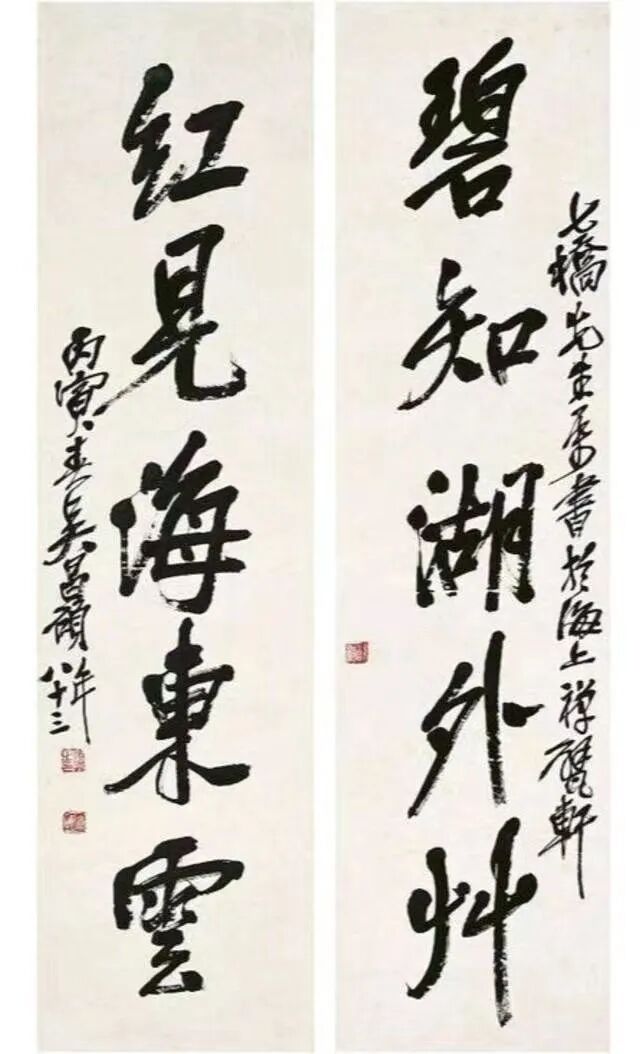 碧知湖外艸
七橋先生属書於海上禅甓軒
紅見海東雲
丙寅春吳昌碩年
八十三